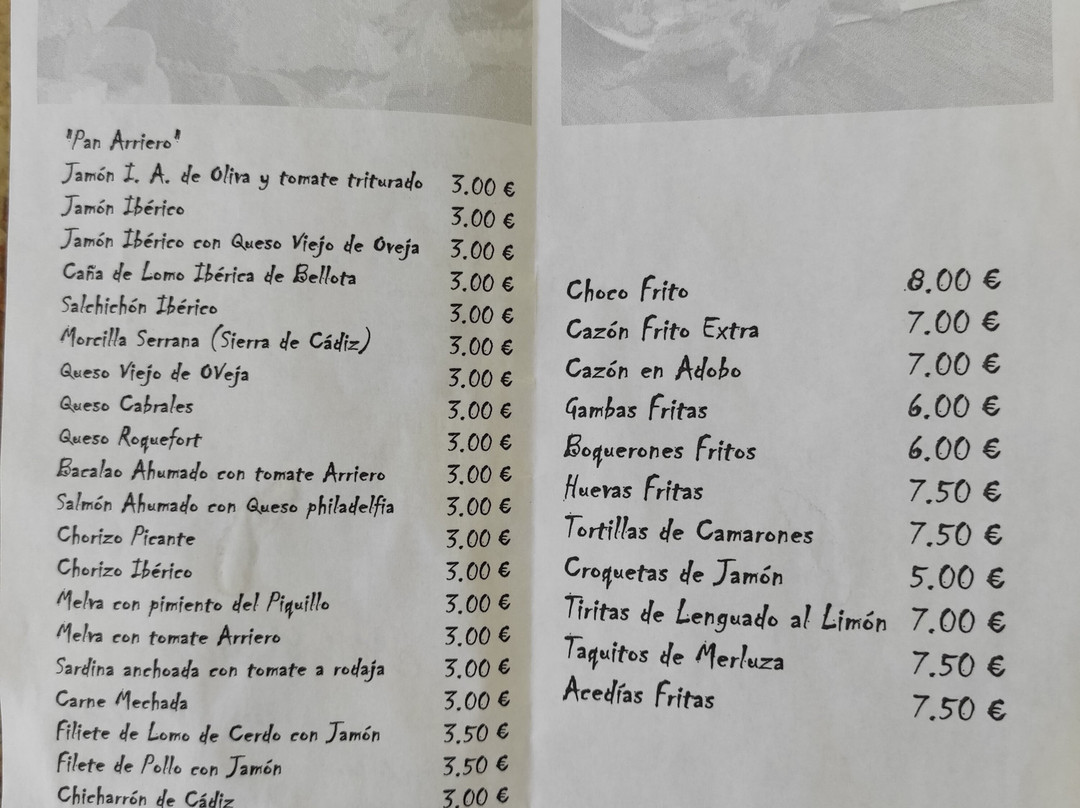 "Pan Arriero"
Jamón I. A. de Oliva y tomate triturado 3.00 €
Jamón Ibérico 3.00 €
Jamón Ibérico con Queso Viejo de Oveja 3.00 €
Caña de Lomo Ibérica de Bellota 3.00 €
Salchichón Ibérico 3.00 €
Morcilla Serrana (Sierra de Cádiz) 3.00 €
Queso Viejo de OVeja 3.00 €
Queso Cabrales 3.00 €
Queso Roquefort 3.00 €
Bacalao Ahumado con tomate Arriero 3.00 €
Salmón Ahumado con Queso philadelfia 3.00 €
Chorizo Picante 3.00 €
Chorizo Ibérico 3.00 €
Melva con pimiento del Piquillo 3.00 €
Melva con tomate Arriero 3.00 €
Sardina anchoada con tomate a rodaja 3.00 €
Carne Mechada 3.00 €
Filiete de Lomo de Cerdo con Jamón 3.50 €
Filete de Pollo con Jamón 3.50 €
Chicharrón de Cádiz 3.00 €
Choco Frito 8.00 €
Cazón Frito Extra 7.00 €
Cazón en Adobo 7.00 €
Gambas Fritas 6.00 €
Boquerones Fritos 6.00 €
Huevas Fritas 7.50 €
Tortillas de Camarones 7.50 €
Croquetas de Jamón 5.00 €
Tiritas de Lenguado al Limón 7.00 €
Taquitos de Merluza 7.50 €
Acedías Fritas 7.50 €